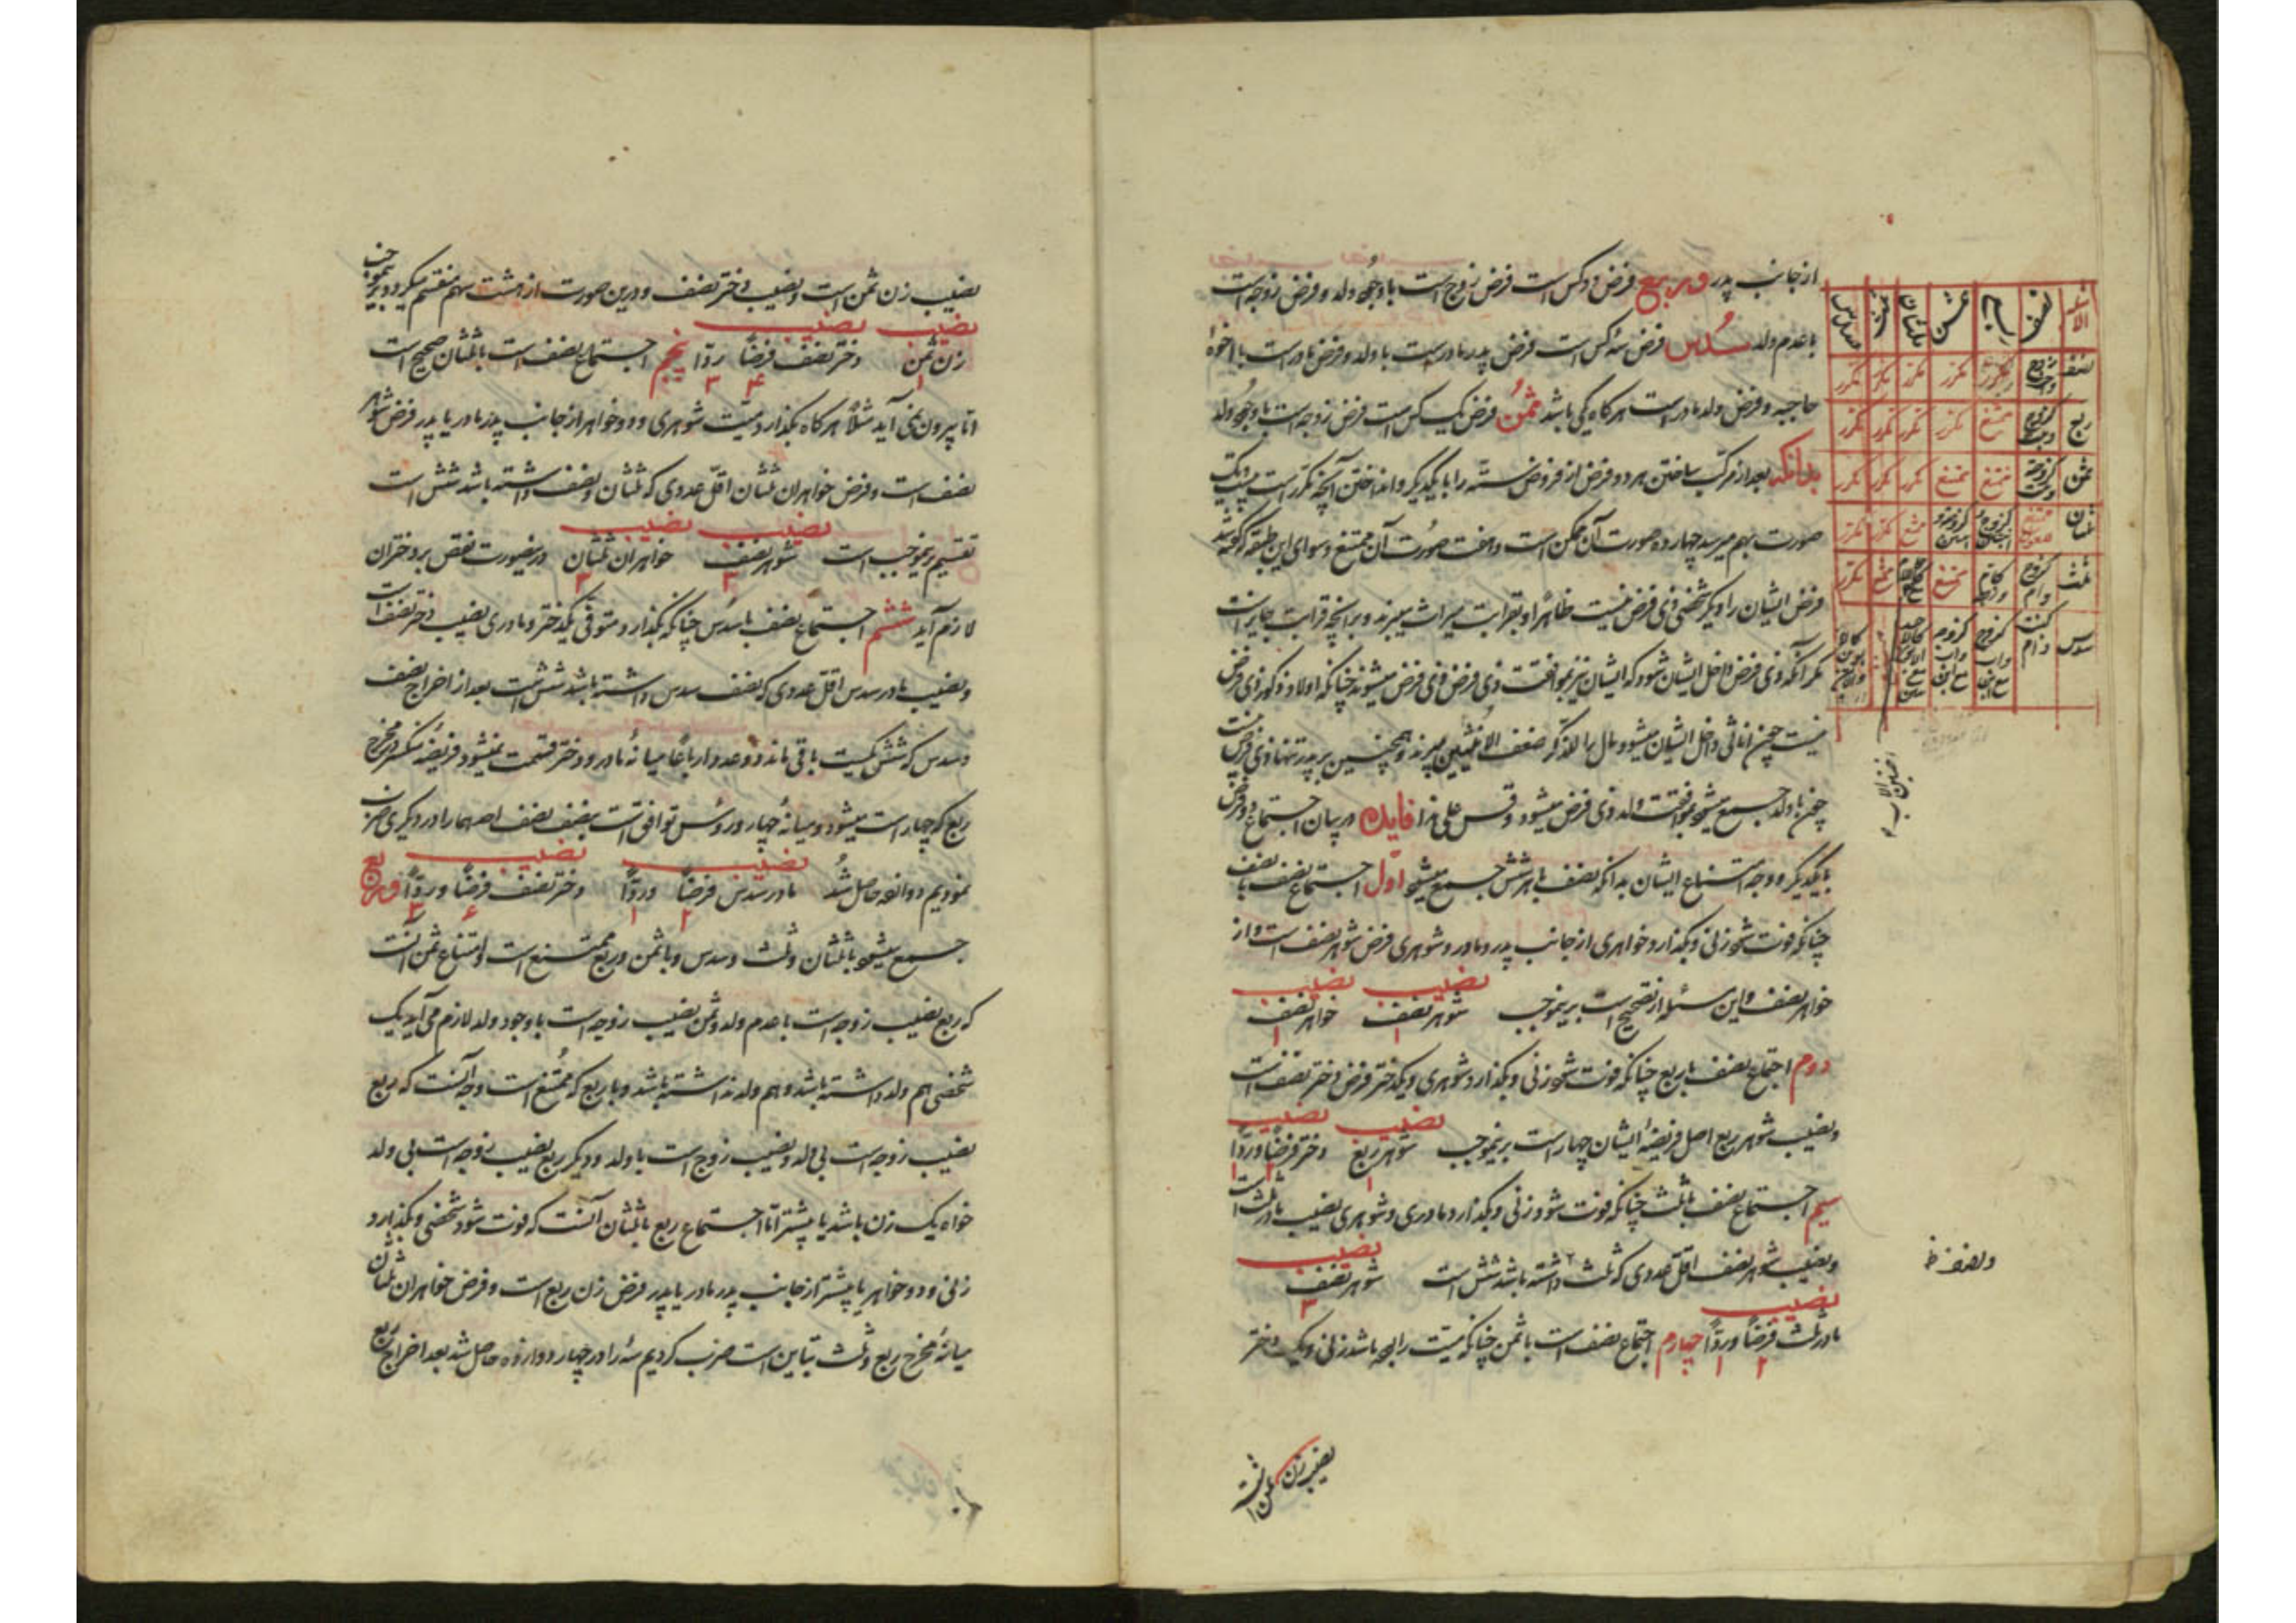 از جانب پدر و ربع فرض دو کس است فرض زوج است با وجود ولد و فرض زوجه است
با عدم ولد سُدس فرض سه کس است فرض پدر مادر است با ولد و فرض مادر است با اخوهٔ
حاجبه و فرض ولد مادر است هرگاه یکی باشد ثمنُ فرض یک کس است فرض زوجه است با وجود ولد
بدانکه بعد از مرکب ساختن هر دو فرض از فروض ستّه را با یکدیگر و انداختن آنچه مکرر است بیست و یک
صورت بهم میرسد چهارده صورت آن ممکن است و هفت صورت آن ممتنع و سوای این طبقه که گفته شد
فرض ایشان را و دیگر شخصی ذی فرض نیست ظاهرًا و بقرابت میراث میبرند و بر آنچه قرابت جایز است
مگر آنکه ذی فرض داخل ایشان شود که ایشان نیز بموافقت ذی فرض ذی فرض میشوند چنانکه اولاد ذکور ذی فرض
نیست چون اناثی داخل ایشان میشود مال را للذکر ضعف الانثیین میبرند و همچنین بر پدر تنها ذی فرض نیست
چون با ولد جمع میشود بموافقت ولد ذی فرض میشود و قس علی هذا فایده در بیان اجتماع دو فرض
با یکدیگر و وجه امتناع ایشان بدانکه نصف با هر شش جمع میشود اوّل اجتماع نصف با نصف
چنانکه فوت شود زنی و بگذارد خواهری از جانب پدر و مادر و شوهری فرض شوهر نصف است و از
خواهر نصف و این مسئله از تصحیح است برینموجب نصیب شوهر نصف ۱ نصیب خواهر نصف ۱
دوم اجتماع نصف با ربع چنانکه فوت شود زنی و بگذارد شوهری و یکدختر فرض دختر نصف است
و نصیب شوهر ربع اصل فریضهٔ ایشان چهار است برینموجب نصیب شوهر ربع ۱ نصیب دختر فرضًا و ردًّا ۲ ۱
سیم اجتماع نصف با ثلث چنانکه فوت شود زنی و بگذارد مادری و شوهری نصیب مادر ثلث است
و نصیب شوهر نصف اقل عددی که ثلث داشته باشد شش است نصیب شوهر نصف ۳
و نصف ظ
نصیب مادر ثلث فرضًا و ردًّا ۲ ۱ چهارم اجتماع نصف است با ثمن چنانکه میّت را باشد زنی و یک دختر
نصیب زن ثمن است
نصف ربع ثمن ثلثان ثلث سدس
نصف مکرر مکرر مکرر مکرر مکرر
ربع ممتنع مکرر مکرر مکرر مکرر
ثمن ممتنع ممتنع مکرر مکرر مکرر
ثلثان
ثلث ممتنع ممتنع مکرر
سدس
نصیب زن ثمن است و نصیب دختر نصف و درین صورت از هشت سهم منقسم میگردد برینموجب
نصیب زن ثمن ۱ نصیب دختر نصف فرضًا ۴ ردًّا ۳ پنجم اجتماع نصف است با ثلثان صحیح است
اما بیرون نمی آید مثلًا هرگاه بگذارد میّت شوهری و دو خواهر از جانب پدر مادر یا پدر فرض شوهر
نصف است و فرض خواهران ثلثان اقلّ عددی که ثلثان و نصف داشته باشد شش است
تقسیم برینموجب است نصیب شوهر نصف ۳ نصیب خواهران ثلثان ۳ درینصورت نقص بر دختران
لازم آید ششم اجتماع نصف با سدس چنانکه بگذارد متوفی یکدختر و مادری نصیب دختر نصف است
و نصیب مادر سدس اقلّ عددی که نصف سدس داشته باشد شش است بعد از اخراج نصف
و سدس که شش یکیست باقی ماند دو عدد ارباعًا میانهٔ مادر و دختر قسمت نمیشود فریضه منکسر در مخرج
ربع که چهار است میشود و میانهٔ چهار و رؤس توافق است بنصف نصف احدهما را در دیگری ضرب
نمودیم دوازده حاصل شُد نصیب مادر سدس فرضًا ۲ و ردًّا ۱ نصیب دختر نصف فرضًا ۶ و ردًّا ۳ و ربع
جمع میشود با ثلثان و ثلث و سدس و با ثمن و ربع ممتنع است و امتناع ثمن آنست
که ربع نصیب زوجه است با عدم ولد و ثمن نصیب زوجه است با وجود ولد لازم می آید یک
شخص هم ولد داشته باشد و هم ولد نداشته باشد و با ربع که مُمتنع است وجه آنست که ربع
نصیب زوجه است بی ولد و نصیب زوج است با ولد و دیگر ربع نصیب زوجه است بی ولد
خواه یک زن باشد یا بیشتر امّا اجتماع ربع با ثلثان آنست که فوت شود شخصی و بگذارد
زنی و دو خواهر یا بیشتر از جانب پدر مادر یا پدر فرض زن ربع است و فرض خواهران ثلثان
میانهٔ مخرج ربع و ثلث تباین است ضرب کردیم سه را در چهار دوازده حاصل شد بعد اخراج ربع